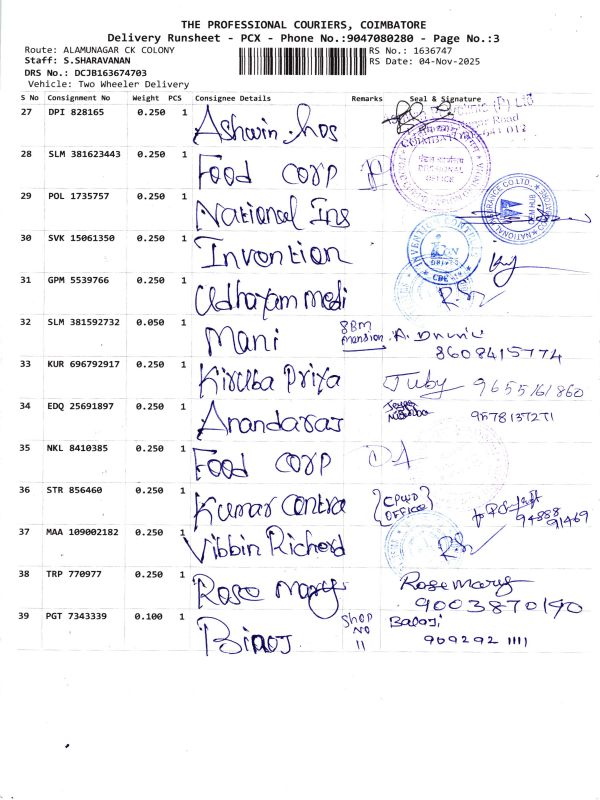 THE PROFESSIONAL COURIERS, COIMBATORE
Delivery Runsheet - PCX - Phone No.:9047080280 - Page No.:3
Route: ALAMUNAGAR CK COLONY RS No.: 1636747
Staff: S.SHARAVANAN RS Date: 04-Nov-2025
DRS No.: DCJB163674703
Vehicle: Two Wheeler Delivery
S No Consignment No Weight PCS Consignee Details Remarks Seal & Signature
27 DPI 828165 0.250 1 Ashwin hos
28 SLM 381623443 0.250 1 Food corp
DIVISIONAL OFFICE
29 POL 1735757 0.250 1 National Ins
30 SVK 15061350 0.250 1 Invention
31 GPM 5539766 0.250 1 Udhayam medi
32 SLM 381592732 0.050 1 Mani mansion
8608415774
33 KUR 696792917 0.250 1 Kiruba Priya Juby 9655161860
34 EDQ 25691897 0.250 1 Anandaraj
35 NKL 8410385 0.250 1 Food corp
36 STR 856460 0.250 1 Kumar Contra {CPWD OFFICE} 94888 91469
37 MAA 109002182 0.250 1 Vibbin Richerd
38 TRP 770977 0.250 1 Rose mary Rosemary
9003870190
39 PGT 7343339 0.100 1 Binoj SHOP NO 11 Balaji
909292 1111